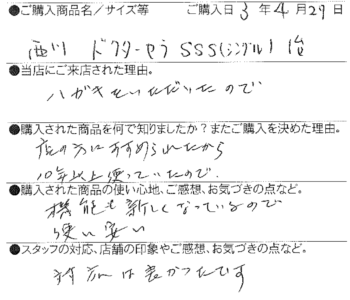 ●ご購入商品名／サイズ等 ご購入日 3 年 4 月 29 日
西川 ドクターセラ SSS(シングル)
●当店にご来店された理由。
ハガキをいただいたので
●購入された商品を何で知りましたか？またご購入を決めた理由。
店の方にすすめられたから
10年以上使っていたので.
●購入された商品の使い心地、ご感想、お気づきの点など。
機能も新しくなっているので
使い安い
●スタッフの対応、店舗の印象やご感想、お気づきの点など。
対応は良かったです